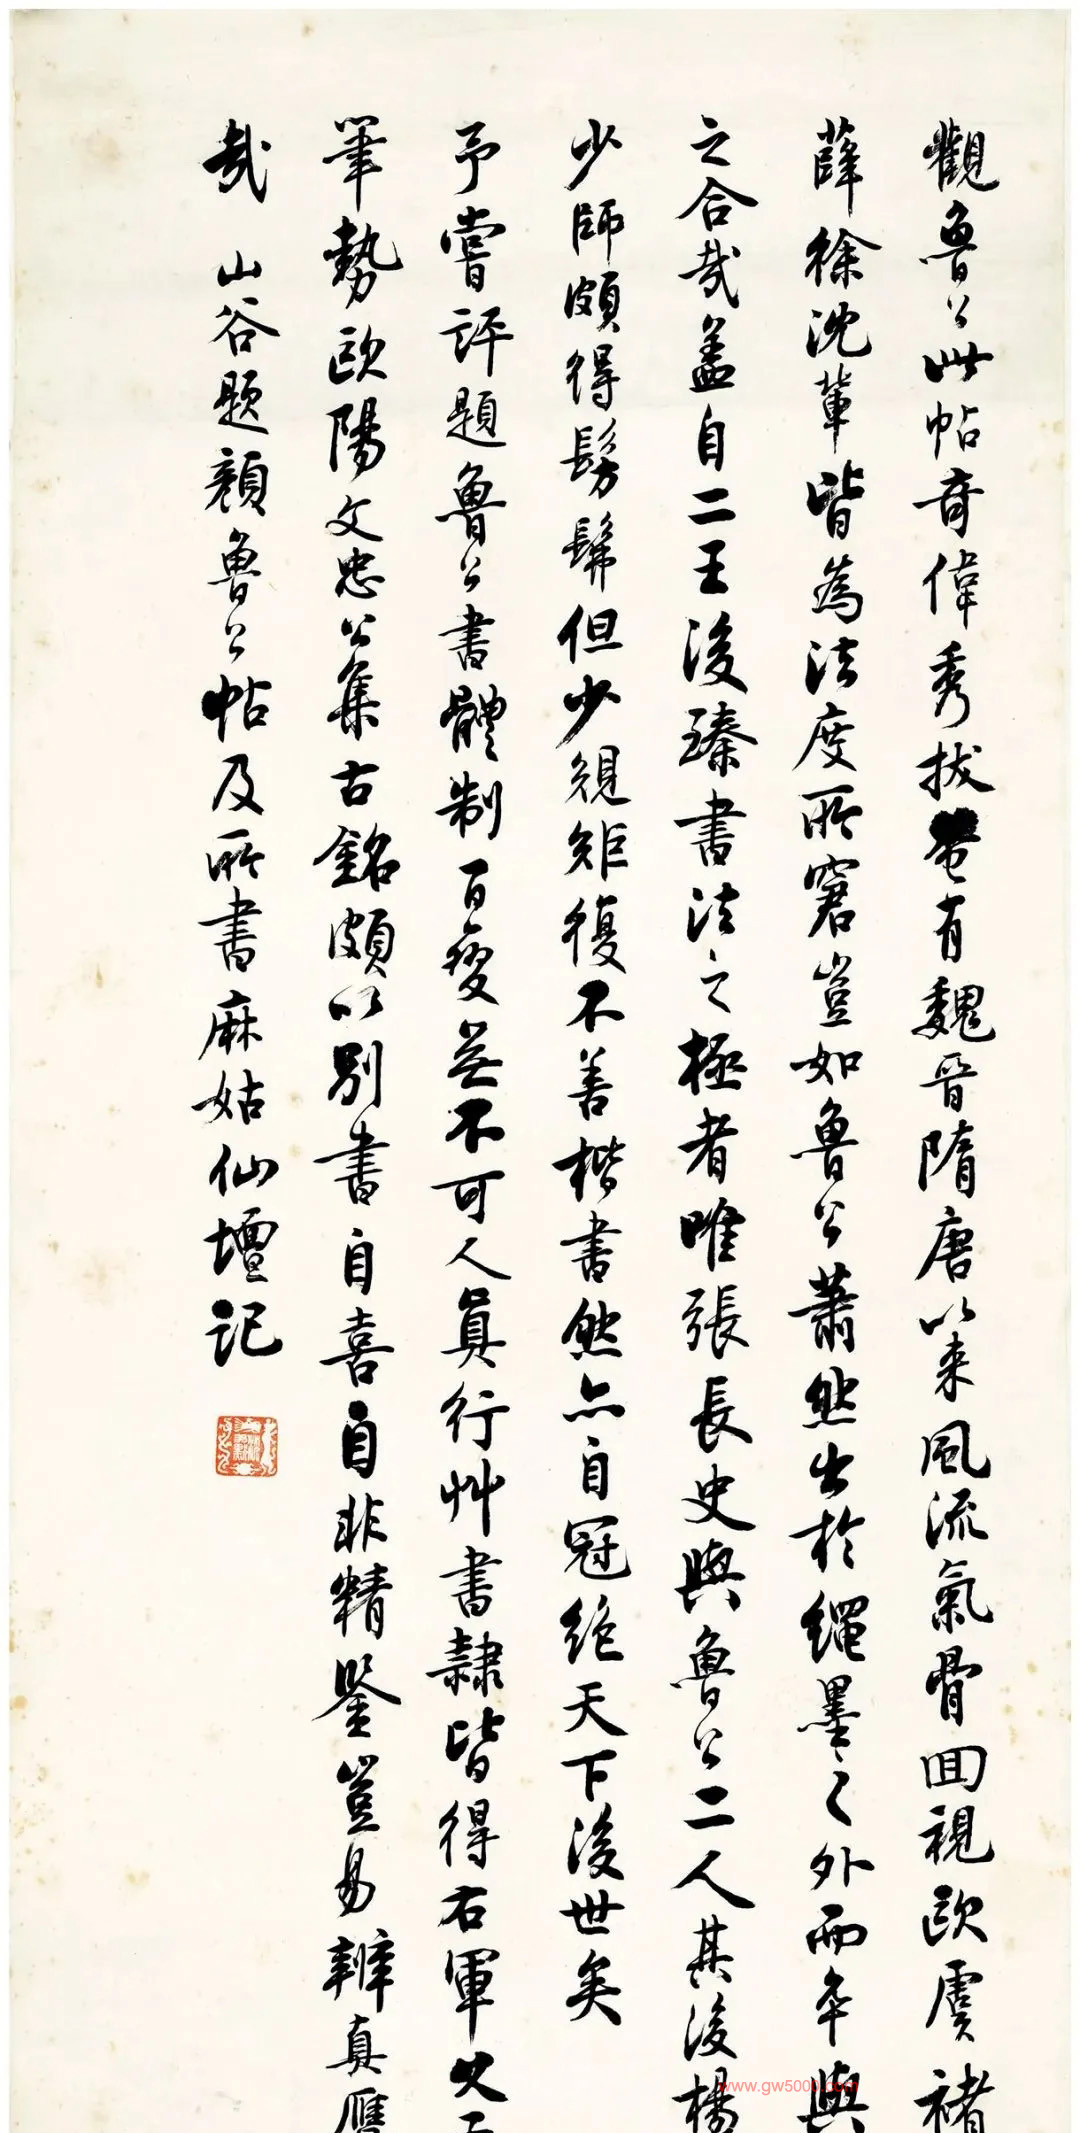 觀魯公此帖奇偉秀拔奄有魏晉隋唐以来風流氣骨回視歐虞褚
薛徐沈輩皆為法度所窘豈如魯公蕭然出於繩墨之外而卒與
之合哉盖自二王後臻書法之極者唯張長史與魯公二人其後楊
少師頗得髣髴但少規矩復不善楷書然亦自冠絶天下後世矣
予嘗評題魯公書體制百變無不可人真行艸書隷皆得右軍父子
筆勢歐陽文忠公集古銘頗以別書自喜自非精鑒豈易辨真贋
哉 山谷题顔魯公帖及所書麻姑仙壇記
www.gw5000.com